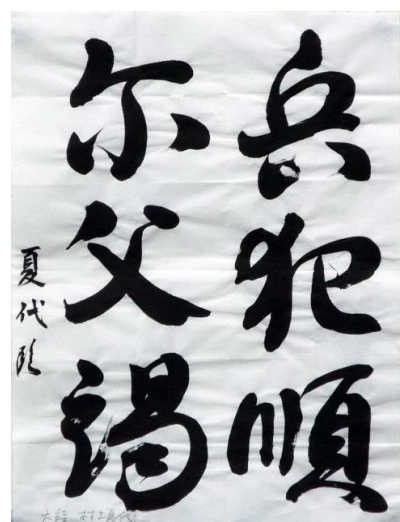 兵犯順
尓父竭
夏代臨
村上夏代